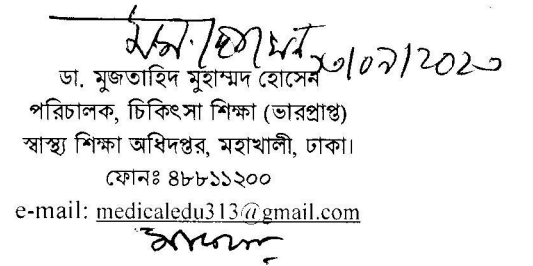 ডা. মুজতাহিদ মুহাম্মদ হোসেন
পরিচালক, চিকিৎসা শিক্ষা (ভারপ্রাপ্ত)
স্বাস্থ্য শিক্ষা অধিদপ্তর, মহাখালী, ঢাকা।
ফোনঃ ৪৮৮১১২০০
e-mail: medicaledu313@gmail.com